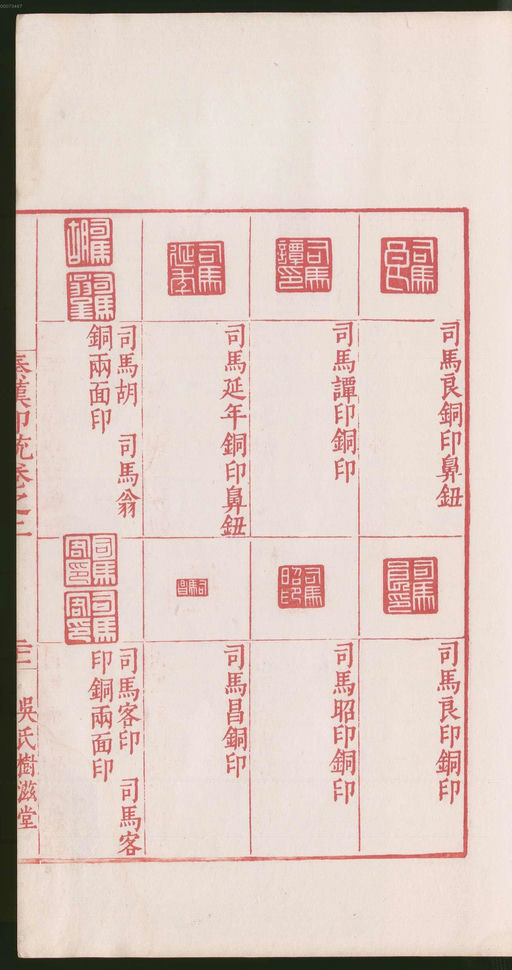 00073467
司馬良銅印鼻鈕
司馬譚印銅印
司馬延年銅印鼻鈕
司馬胡　司馬翁
銅兩面印
司馬良印銅印
司馬昭印銅印
司馬昌銅印
司馬客印　司馬客
印銅兩面印
秦漢印統卷之二
吳氏樹滋堂